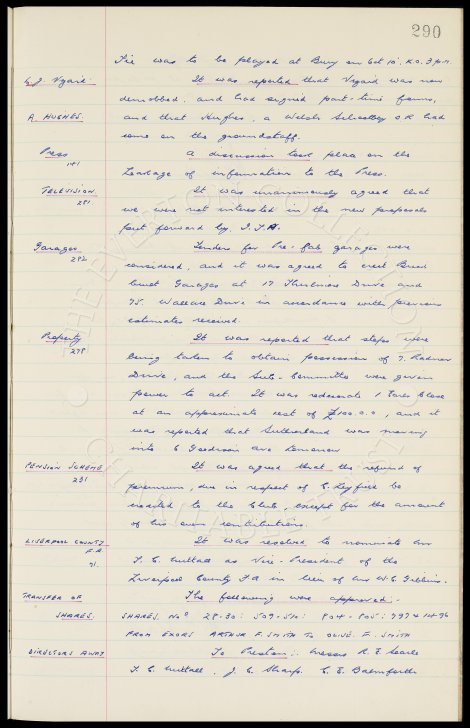 290
Tie was to be played at Bury on Oct 10. K.O. 3 p.m.
G. J. Vizard. It was reported that Vizard was now
demobbed. and had signed part-time forms,
A. HUGHES. and that Hughes, a Welsh Schoolboy had
come on the groundstaff.
Press A discussion took place on the
141 Leakage of information to the Press.
TELEVISION. It was unanimously agreed that
281 we were not interested in the new proposals
put forward by. I.T.A.
Garages Tenders for Pre-fab garages were
282 considered, and it was agreed to erect Brick
built Garages at 17 Thirlmere Drive and
75. Wallace Drive in accordance with previous
estimates received.
Property It was reported that steps were
278 being taken to obtain possession of 7. Radnor
Drive, and the Sub-Committee were given
power to act. It was redecorate 1 Close
at an approximate cost of £100.0.0, and it
was reported that Sutherland was moving
into 6 Goodison Ave tomorrow
PENSION SCHEME It was agreed that the refund of
231 premiums, due in respect of C. Leyfield be
credited to the Club, except for the amount
of his own contributions.
LIVERPOOL COUNTY It was resolved to nominate Mr
F.A
91. F. C. Nuttall as Vice-President of the
Liverpool County F.A in lieu of Mr W. C. Gibbins.
TRANSFER OF The following were approved.
SHARES. SHARES. Nos 28-30: 509-510: 804-805: 797 & 1496
FROM EXORS ARTHUR F. SMITH TO OLIVE. F. SMITH
DIRECTORS AWAY To Preston:. Messrs R. E. Searle
F. C. Nuttall, J. C. Sharp. C. E. Balmforth
THE EVERTON COLLECTION
CHARITABLE TRUST